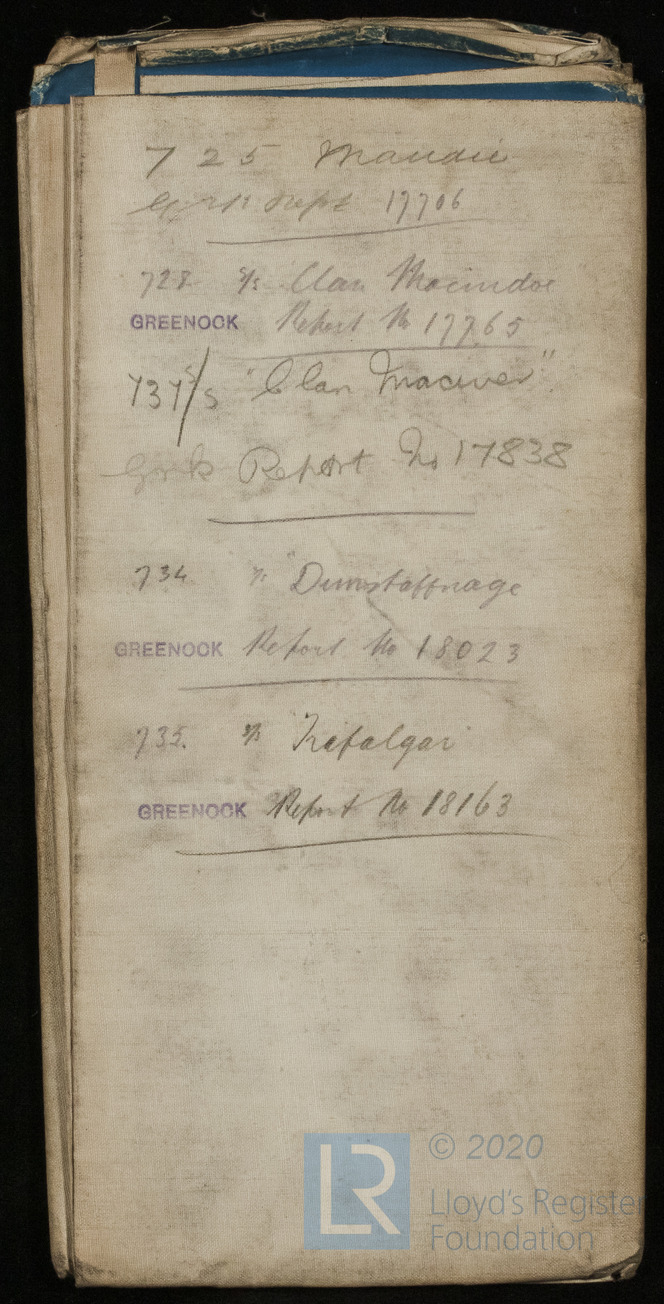 725 Maudie
Grk Rept 17706
728 S/S "Clan Macindoe"
GREENOCK Report No 17765
737 S/S "Clan Maciver"
Grk Report No 17838
734 S/S "Dunstaffnage
GREENOCK Report No 18023
735. S/S "Trafalgar"
GREENOCK Report No 18163
LR
© 2020
Lloyd's Register
Foundation